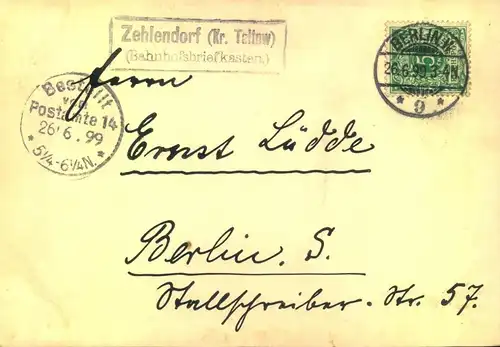 Zehlendorf (Kr. Teltow)
(Bahnhofsbriefkasten.)
BERLIN.W.
26.6.99.3-4N.
* 9 *
Bestellt
vom
Postamte 14
26/6.99
* 5¼-6¼N. *
Herrn
Ernst Lüdde
Berlin. S.
Stallschreiber. Str. 57.